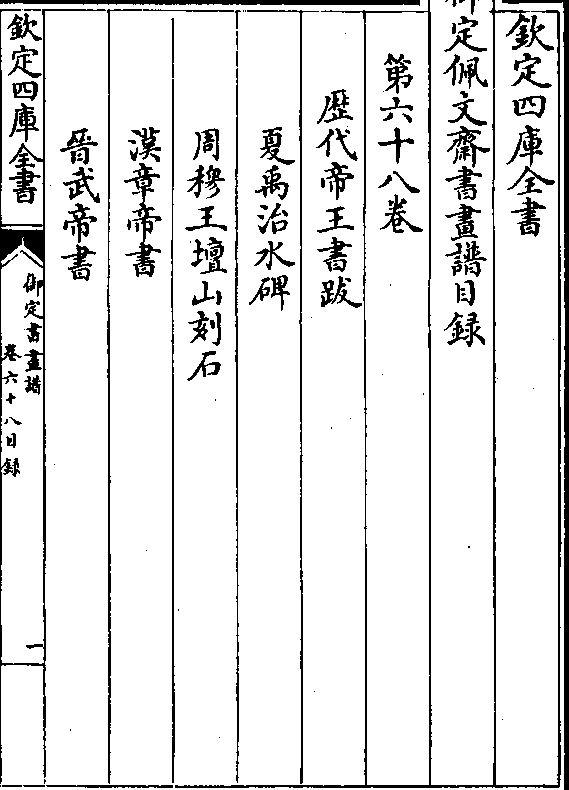 欽定四庫全書
御定佩文齋書畫譜目録
第六十八卷
歴代帝王書跋
夏禹治水碑
周穆王壇山刻石
漢章帝書
晉武帝書
欽定四庫全書
御定書畫譜
卷六十八目録
一